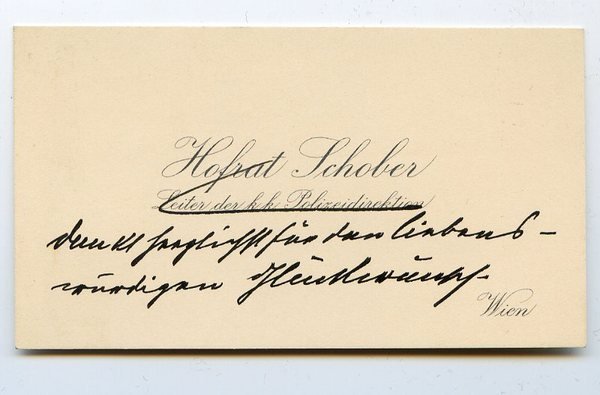 Hofrat Schober
Leiter der k.k. Polizeidirektion
dankt herzlichst für den liebens-
würdigen Glückwunsch.
Wien